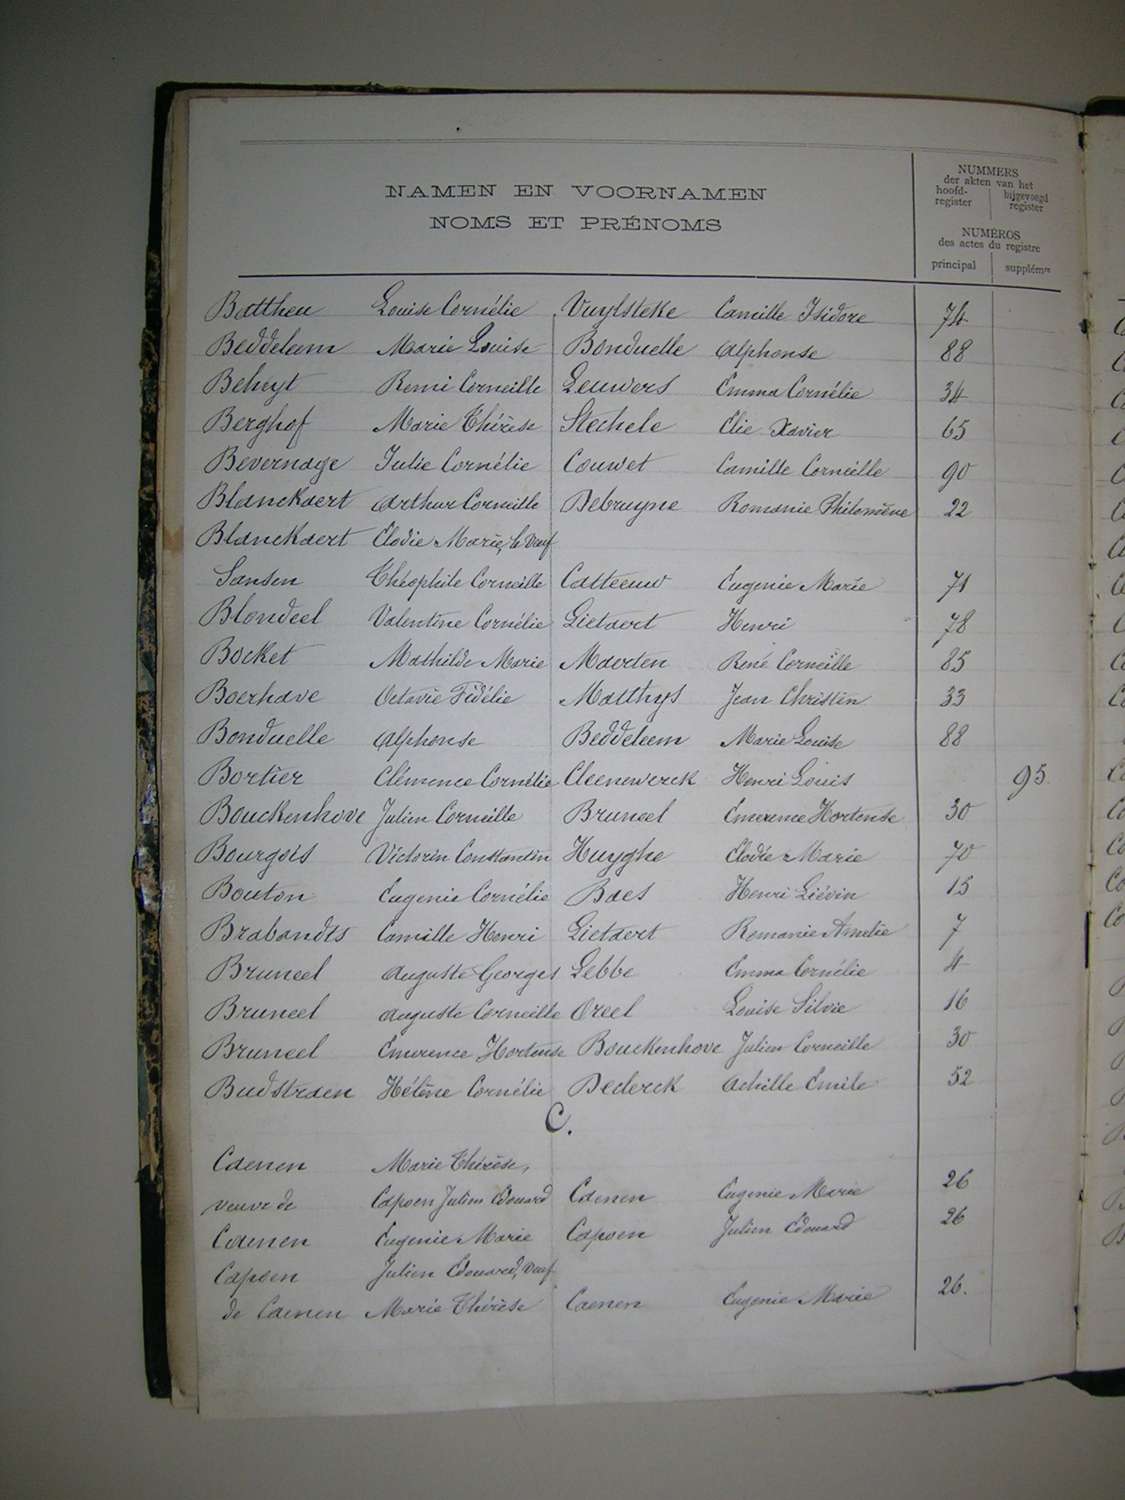 NAMEN EN VOORNAMEN
NOMS ET PRÉNOMS
NUMMERS
der akten van het
hoofd-register bijgevoegd register
NUMÉROS
des actes du registre
principal supplémre
Battheu Louise Cornélie Vuylsteke Camille Isidore 74
Beddeleem Marie Louise Bonduelle Alphonse 88
Beheyt Remi Corneille Leuwers Emma Cornélie 34
Berghof Marie Thérèse Stechele Elie Xavier 65
Bevernage Julie Cornélie Couwet Camille Corneille 90
Blanckaert Arthur Corneille Debruyne Romanie Philomène 22
Blanckaert Elodie Marie, le Veuf
Sansen Théophile Corneille Catteeuw Eugenie Marie 71
Blondeel Valentine Cornélie Lietaert Henri 78
Bocket Mathilde Marie Maerten René Corneille 85
Boerhave Octavie Fidélie Matthys Jean Christin 33
Bonduelle Alphonse Beddeleem Marie Louise 88
Bortier Clémence Cornélie Cleenewerck Henri Louis 95
Bouckenhove Julien Corneille Bruneel Emerence Hortense 30
Bourgois Victorin Constantin Huyghe Elodie Marie 70
Bouton Eugenie Cornélie Baes Henri Liévin 15
Brabandts Camille Henri Lietaert Romanie Amelie 7
Bruneel Auguste Georges Lebbe Emma Cornélie 4
Bruneel Auguste Corneille Oreel Louise Silvie 16
Bruneel Emerence Hortense Bouckenhove Julien Corneille 30
Budstraen Hélène Cornélie Declerck Achille Emile 52
C.
Caenen Marie Thérèse,
veuve de Capoen Julien Edouard Caenen Eugenie Marie 26
Caenen Eugenie Marie Capoen Julien Edouard 26
Capoen Julien Edouard, Veuf
de Caenen Marie Thérèse Caenen Eugenie Marie 26.